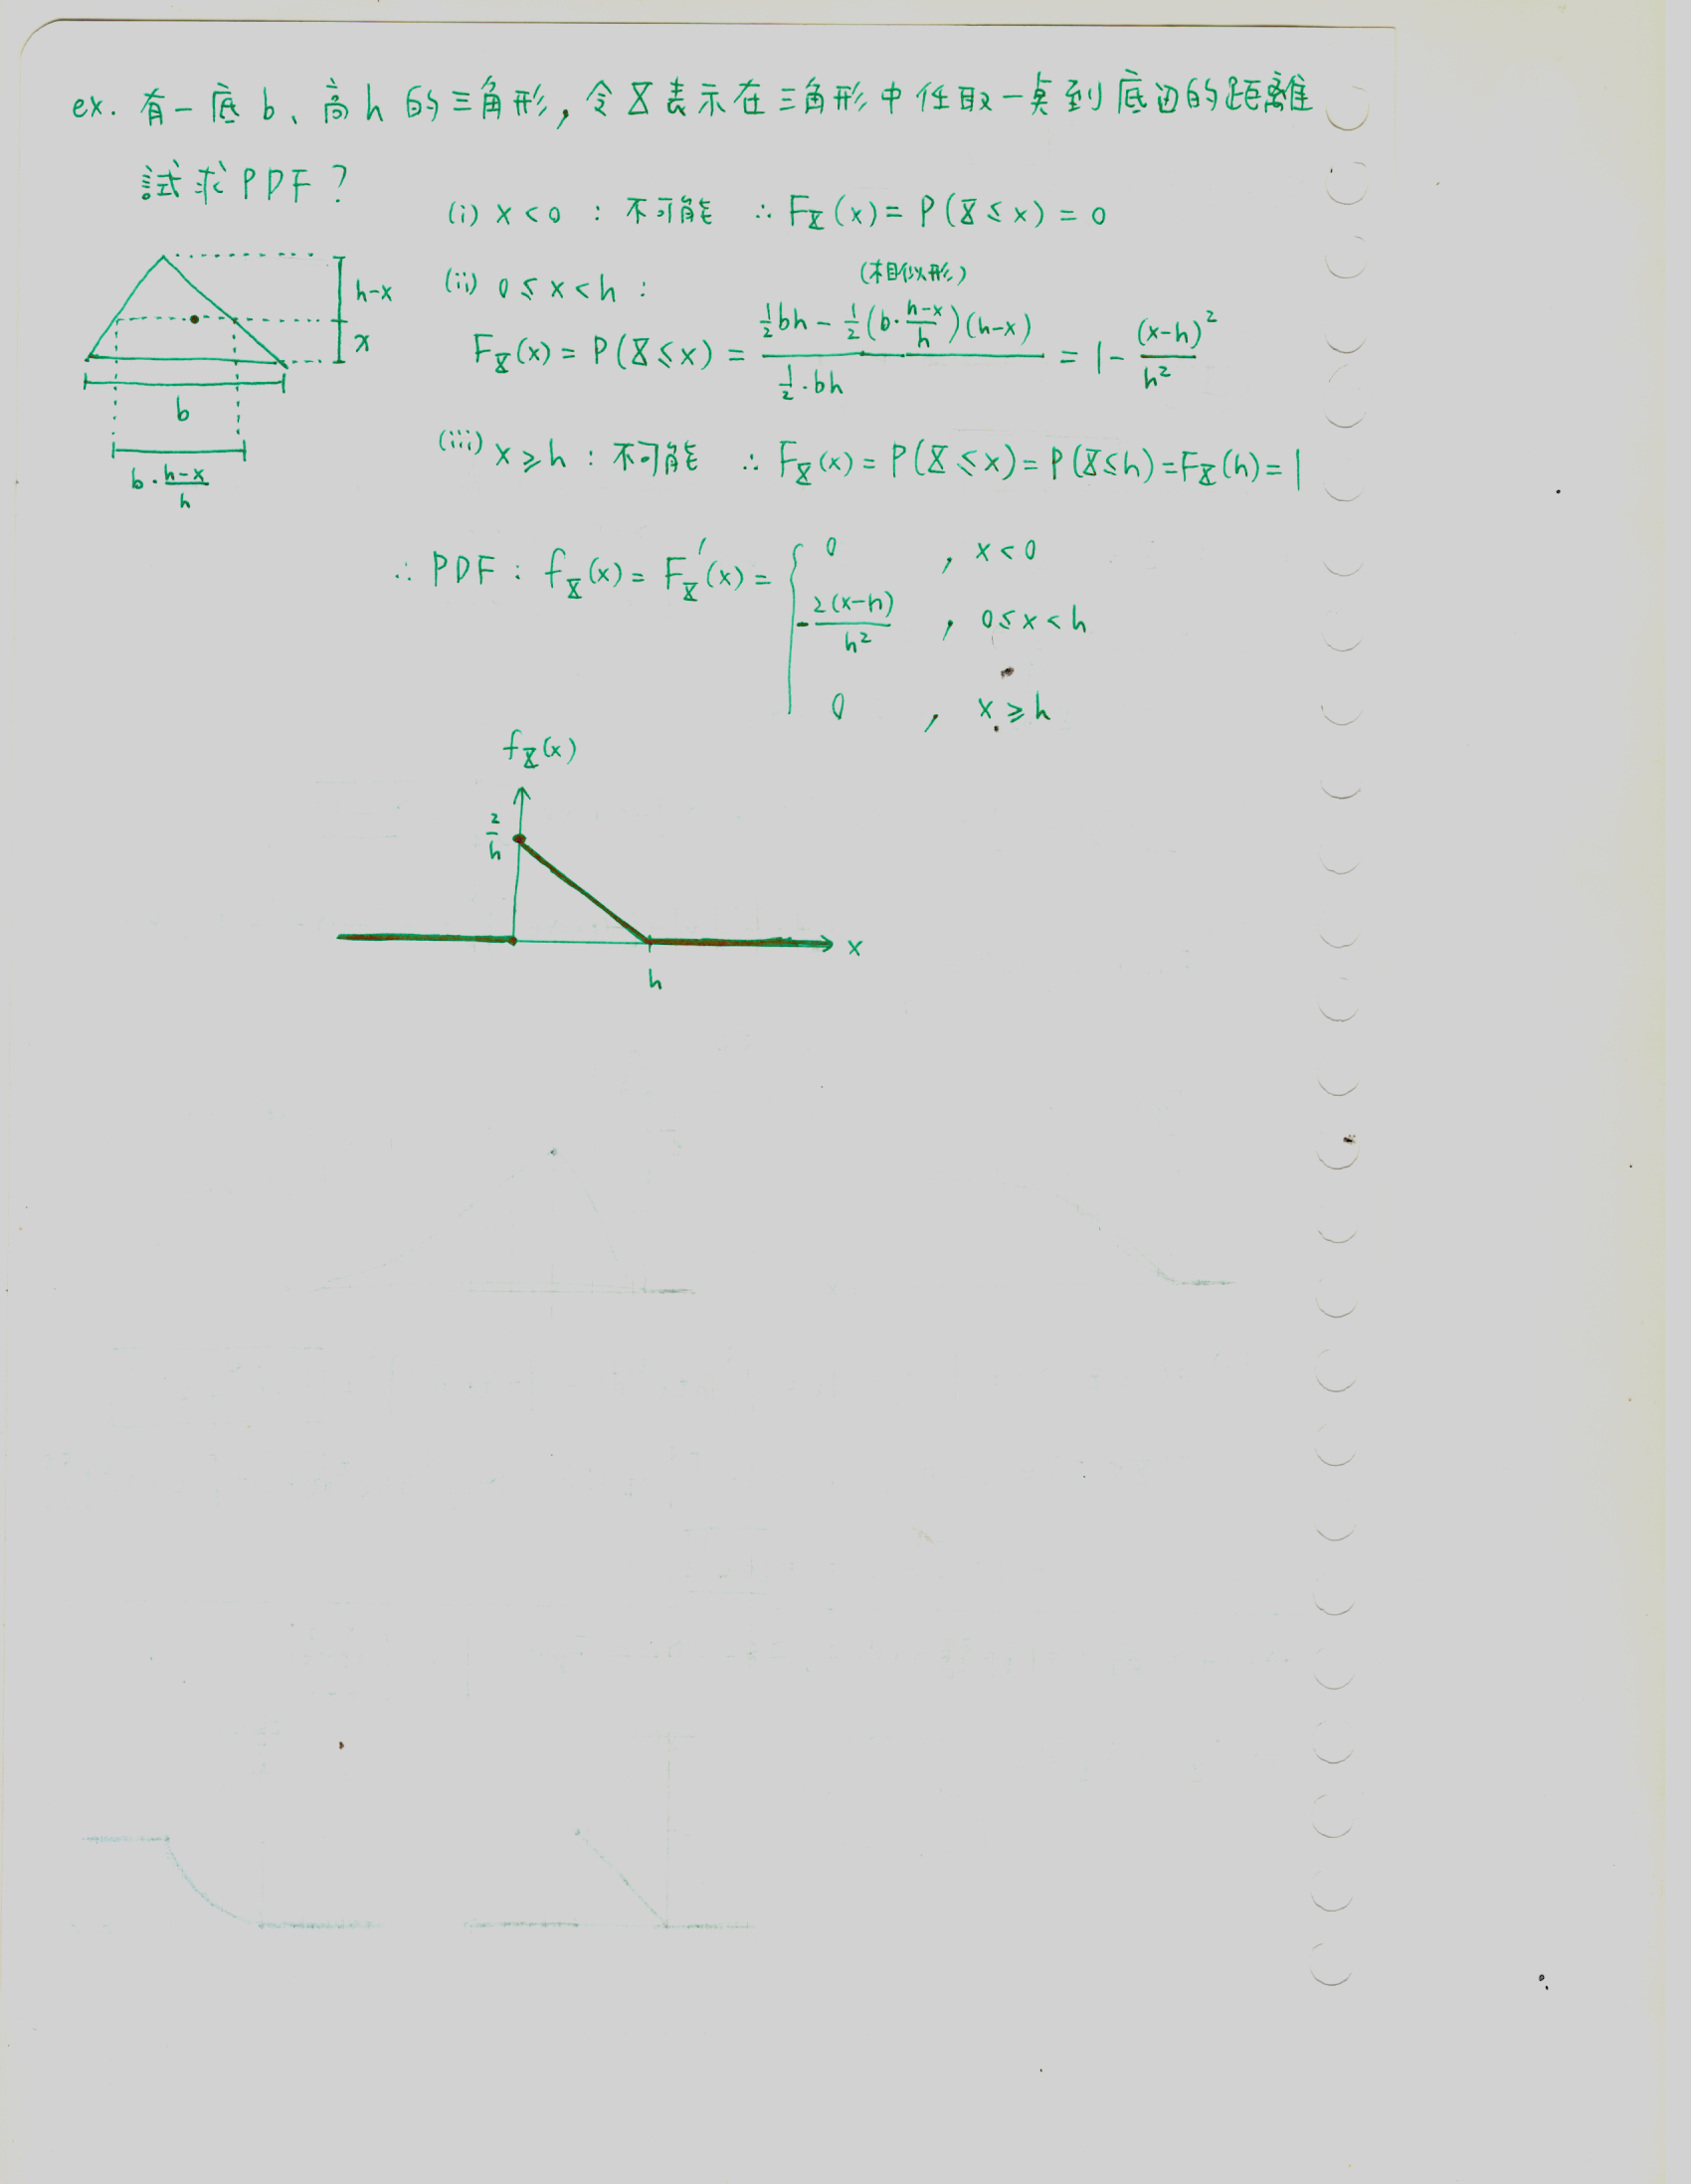 ex. 有一底 b、高 h 的三角形, 令 X 表示在三角形中任取一點到底边的距離
試求 PDF ?
(i) x < 0 : 不可能 ∴ F_X(x) = P(X ≤ x) = 0
(ii) 0 ≤ x < h :
(相似形)
F_X(x) = P(X ≤ x) = (½bh − ½(b·(h−x)/h)(h−x)) / (½·bh) = 1 − (x−h)²/h²
h−x
x
b
b·(h−x)/h
(iii) x ≥ h : 不可能 ∴ F_X(x) = P(X ≤ x) = P(X ≤ h) = F_X(h) = 1
∴ PDF : f_X(x) = F_X'(x) = { 0 , x < 0
−2(x−h)/h² , 0 ≤ x < h
0 , x ≥ h
f_X(x)
2/h
x
h